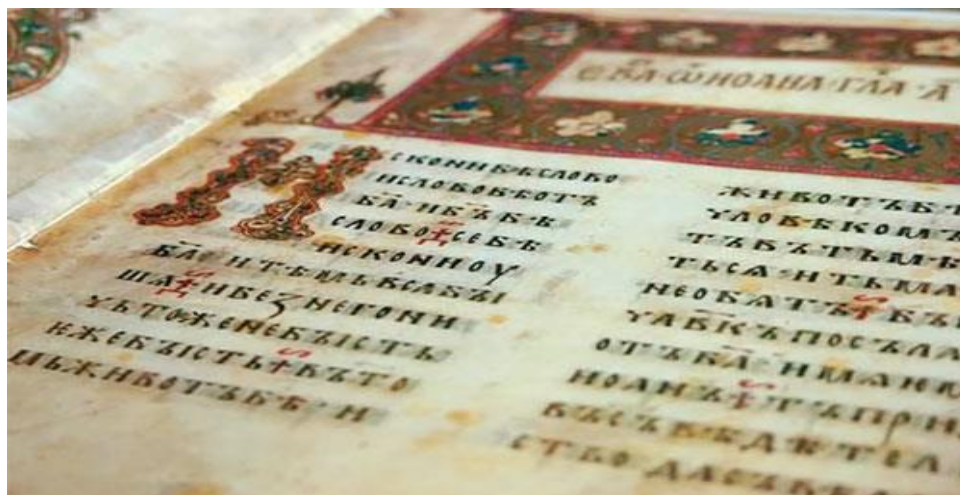 ЕВ҃А·Ѿ ИОАНА·ГЛ҃А·А҃
ИСКОНИБѢСЛОВО
ИСЛОВОБѢОТЪ
Б҃А·ИБ҃ЪБѢ
СЛОВО·СЕБѢ
ИСКОНИОУ
Б҃А·ИТѢМЬВСАБꙐ
ШѦ·ИБЕЗНЕГОНИ
ЧЬТОЖЕНЕБꙐСТЬ
ЕЖЕБꙐСТЬ·ВЪТО
МЬЖИВОТЪБѢ·И
ЖИВОТЪБѢ
ЧЛОВѢКОМЪ
ТЪВЪТЬМѢ
ТЬСѦ·ИТЬМА
НЕОБѦТЪ·БꙐ
ЧЛ҃ВКЪПОСЪЛА
ОТЪБ҃А·ИМѦ
ИОАНЪ·ТЪПРИ
ВЪСЪВѢДѢТЕЛ
СТВО·ДАСЪВѢ